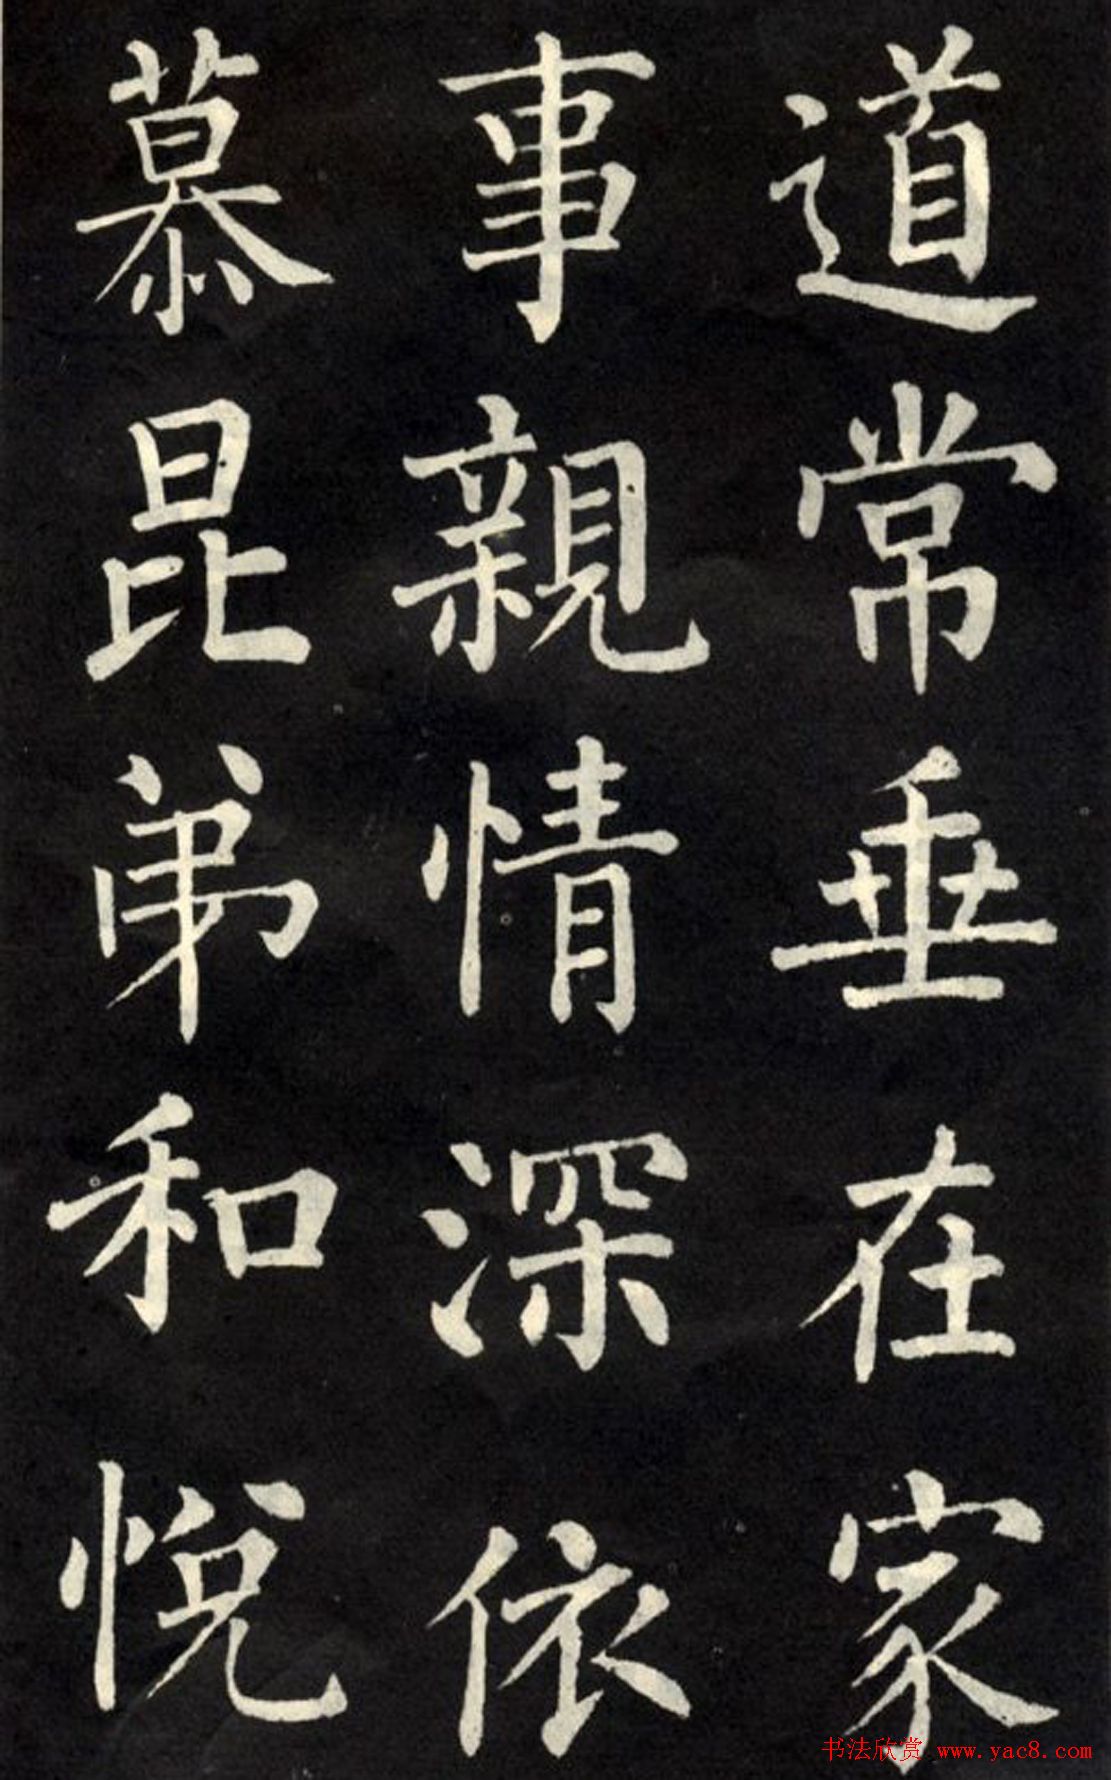 道常垂在家
事親情深依
慕昆弟和悅
书法欣赏 www.yac8.com